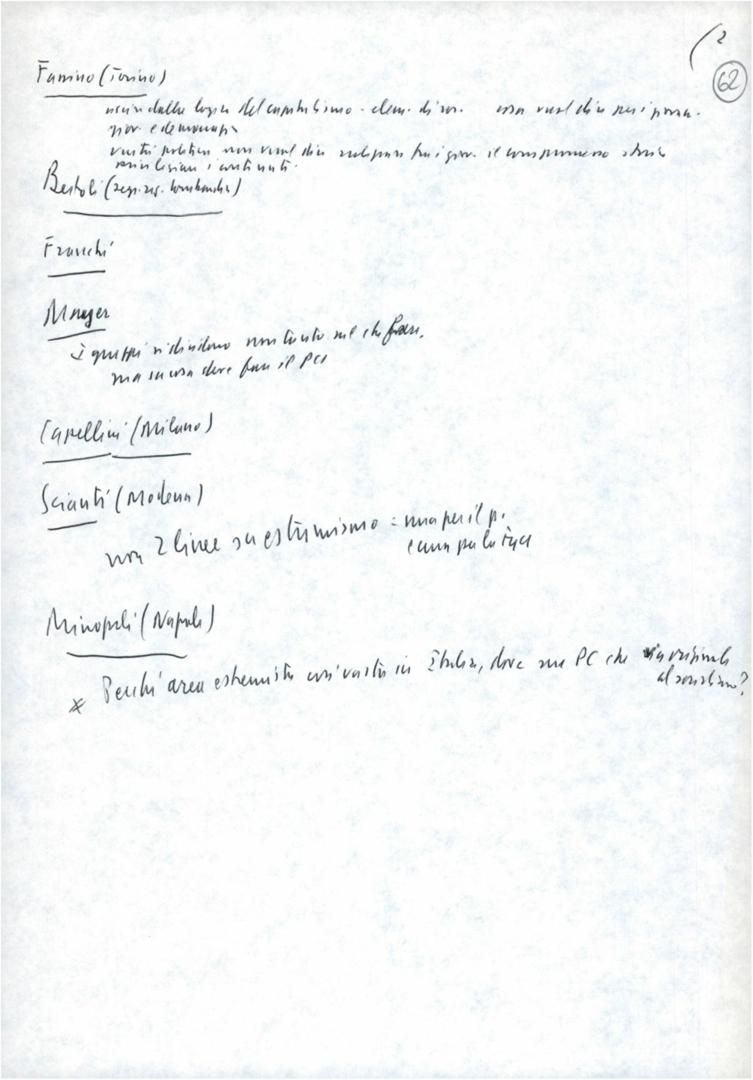 2
62
Fassino (Torino)
uscire dalla logica del capitalismo - elem. di soc. cosa vuol dire per i giovani.
giov. e democrazia
unità politica non vuol dire tra i giov. il compromesso storico
i contenuti.
Bertoli (segr. reg. Lombardia)
Franchi
Mayer
I gruppi si dividono non tanto sul che fare,
ma su cosa deve fare il PCI
Capellini (Milano)
Scianti (Modena)
non 2 linee su estremismo = una per il p.
e una per la FGCI
Minopoli (Napoli)
* Perché area estremista così vasta in Italia, dove un PC che via originale
al socialismo?